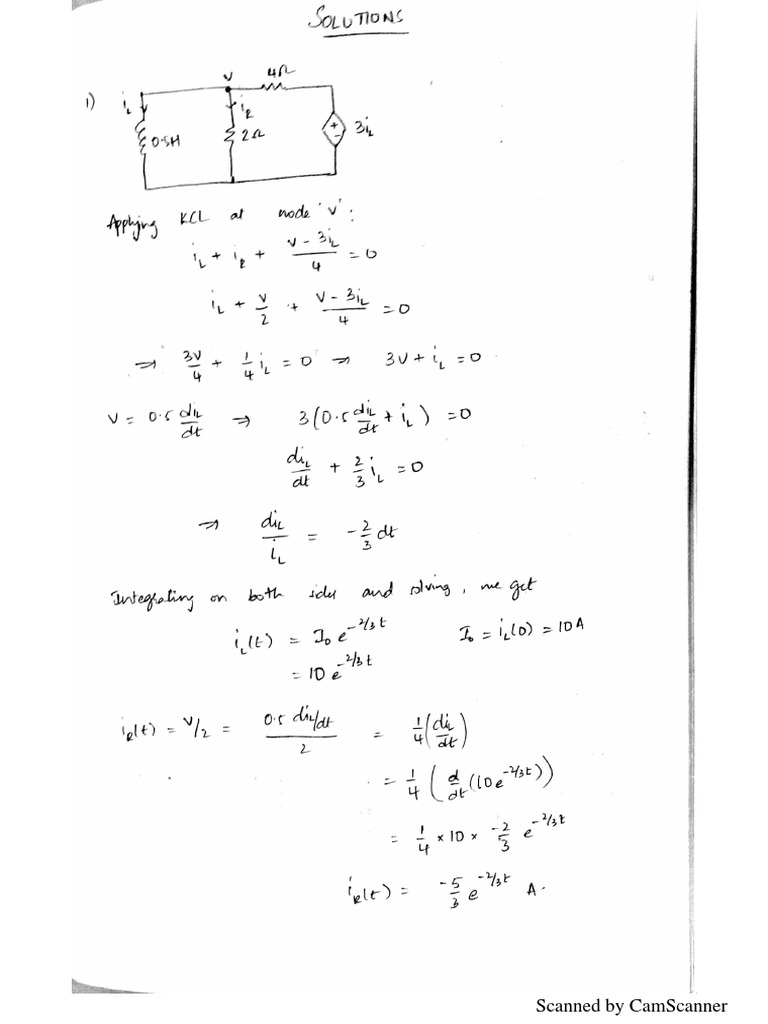 SOLUTIONS
1)
v 4Ω
i_L i_R
0.5H 2Ω + - 3i_L
Applying KCL at node 'v':
i_L + i_R + (v - 3i_L)/4 = 0
i_L + v/2 + (v - 3i_L)/4 = 0
⇒ 3v/4 + 1/4 i_L = 0 ⇒ 3v + i_L = 0
v = 0.5 di_L/dt ⇒ 3(0.5 di_L/dt + i_L) = 0
di_L/dt + 2/3 i_L = 0
⇒ di_L/i_L = -2/3 dt
Integrating on both sides and solving, we get
i_L(t) = I_0 e^{-2/3 t} I_0 = i_L(0) = 10A
= 10 e^{-2/3 t}
i_R(t) = v/2 = (0.5 di_L/dt)/2 = 1/4 (di_L/dt)
= 1/4 (d/dt (10e^{-2/3 t}))
= 1/4 × 10 × -2/3 e^{-2/3 t}
i_R(t) = -5/3 e^{-2/3 t} A.
Scanned by CamScanner